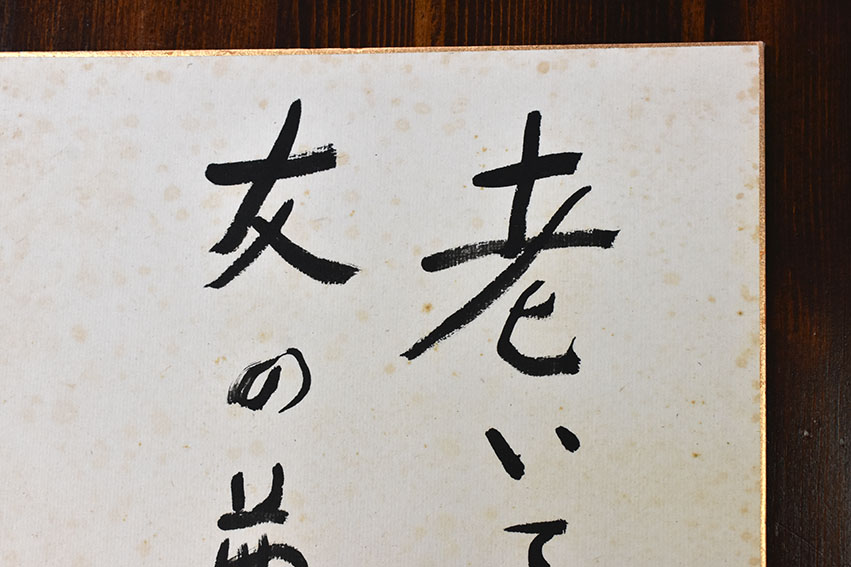 老いて
友の